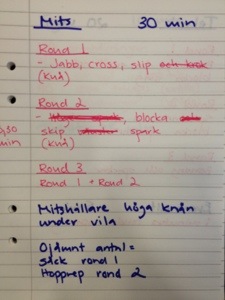 Mits 30 min
Rond 1
- Jabb, cross, slip och krok
(knä)
Rond 2
- höger spark, blocka
skip spark
(knä)
min
Rond 3
Rond 1 + Rond 2
Mitshållare höga knän
under vila
Ojämnt antal =
säck rond 1
Hopprep rond 2